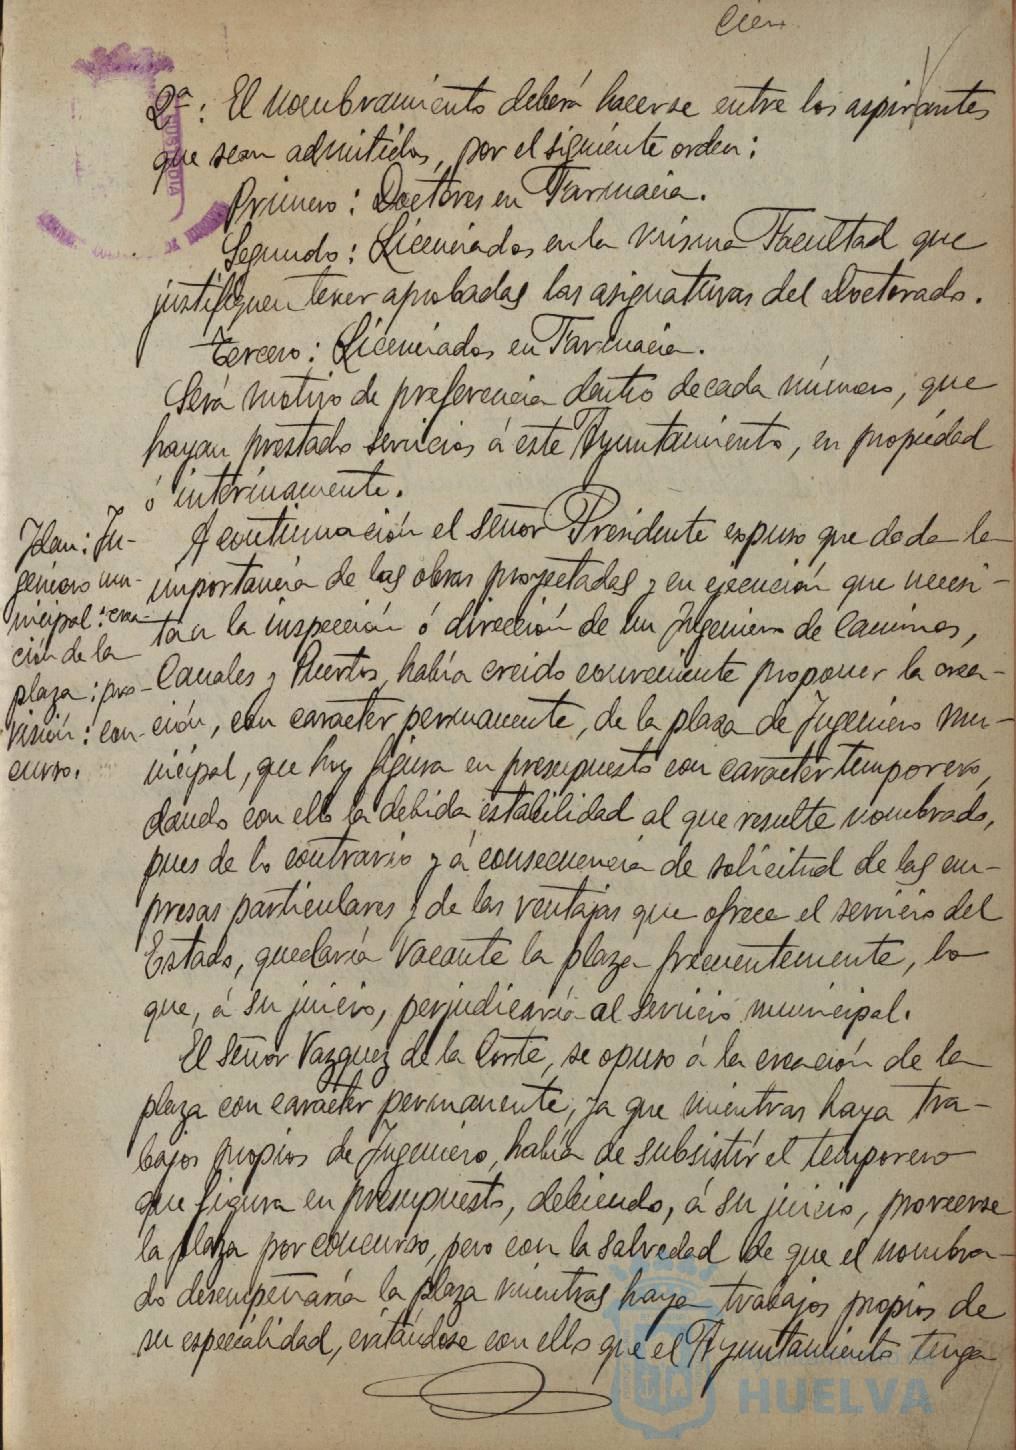 Cien
2ª: El nombramiento deberá hacerse entre los aspirantes
que sean admitidos, por el siguiente orden:
Primero: Doctores en Farmacia.
Segundo: Licenciados en la misma Facultad que
justifiquen tener aprobadas las asignaturas del Doctorado.
Tercero: Licenciados en Farmacia.
Será motivo de preferencia dentro de cada número, que
hayan prestado servicios á este Ayuntamiento, en propiedad
ó interinamente.
Idem: In-
geniero mu-
nicipal: crea-
ción de la
plaza: pro-
visión: con-
curso.
A continuación el señor Presidente expuso que dada la
importancia de las obras proyectadas y en ejecución que necesi-
tan la inspección ó dirección de un Ingeniero de Caminos,
Canales y Puertos, había creido conveniente proponer la crea-
ción, con caracter permanente, de la plaza de Ingeniero Mu-
nicipal, que hoy figura en presupuesto con caracter temporero,
dando con ello la debida estabilidad al que resulte nombrado,
pues de lo contrario y á consecuencia de solicitud de las em-
presas particulares y de las ventajas que ofrece el servicio del
Estado, quedaría vacante la plaza frecuentemente, lo
que, á su juicio, perjudicaría al servicio municipal.
El señor Vazquez de la Corte, se opuso á la creación de la
plaza con caracter permanente, ya que mientras haya tra-
bajos propios de Ingeniero, había de subsistir el temporero
que figura en presupuesto, debiendo, á su juicio, proveerse
la plaza por concurso, pero con la salvedad de que el nombra-
do desempeñaría la plaza mientras haya trabajos propios de
su especialidad, evitándose con ello que el Ayuntamiento tenga
HUELVA